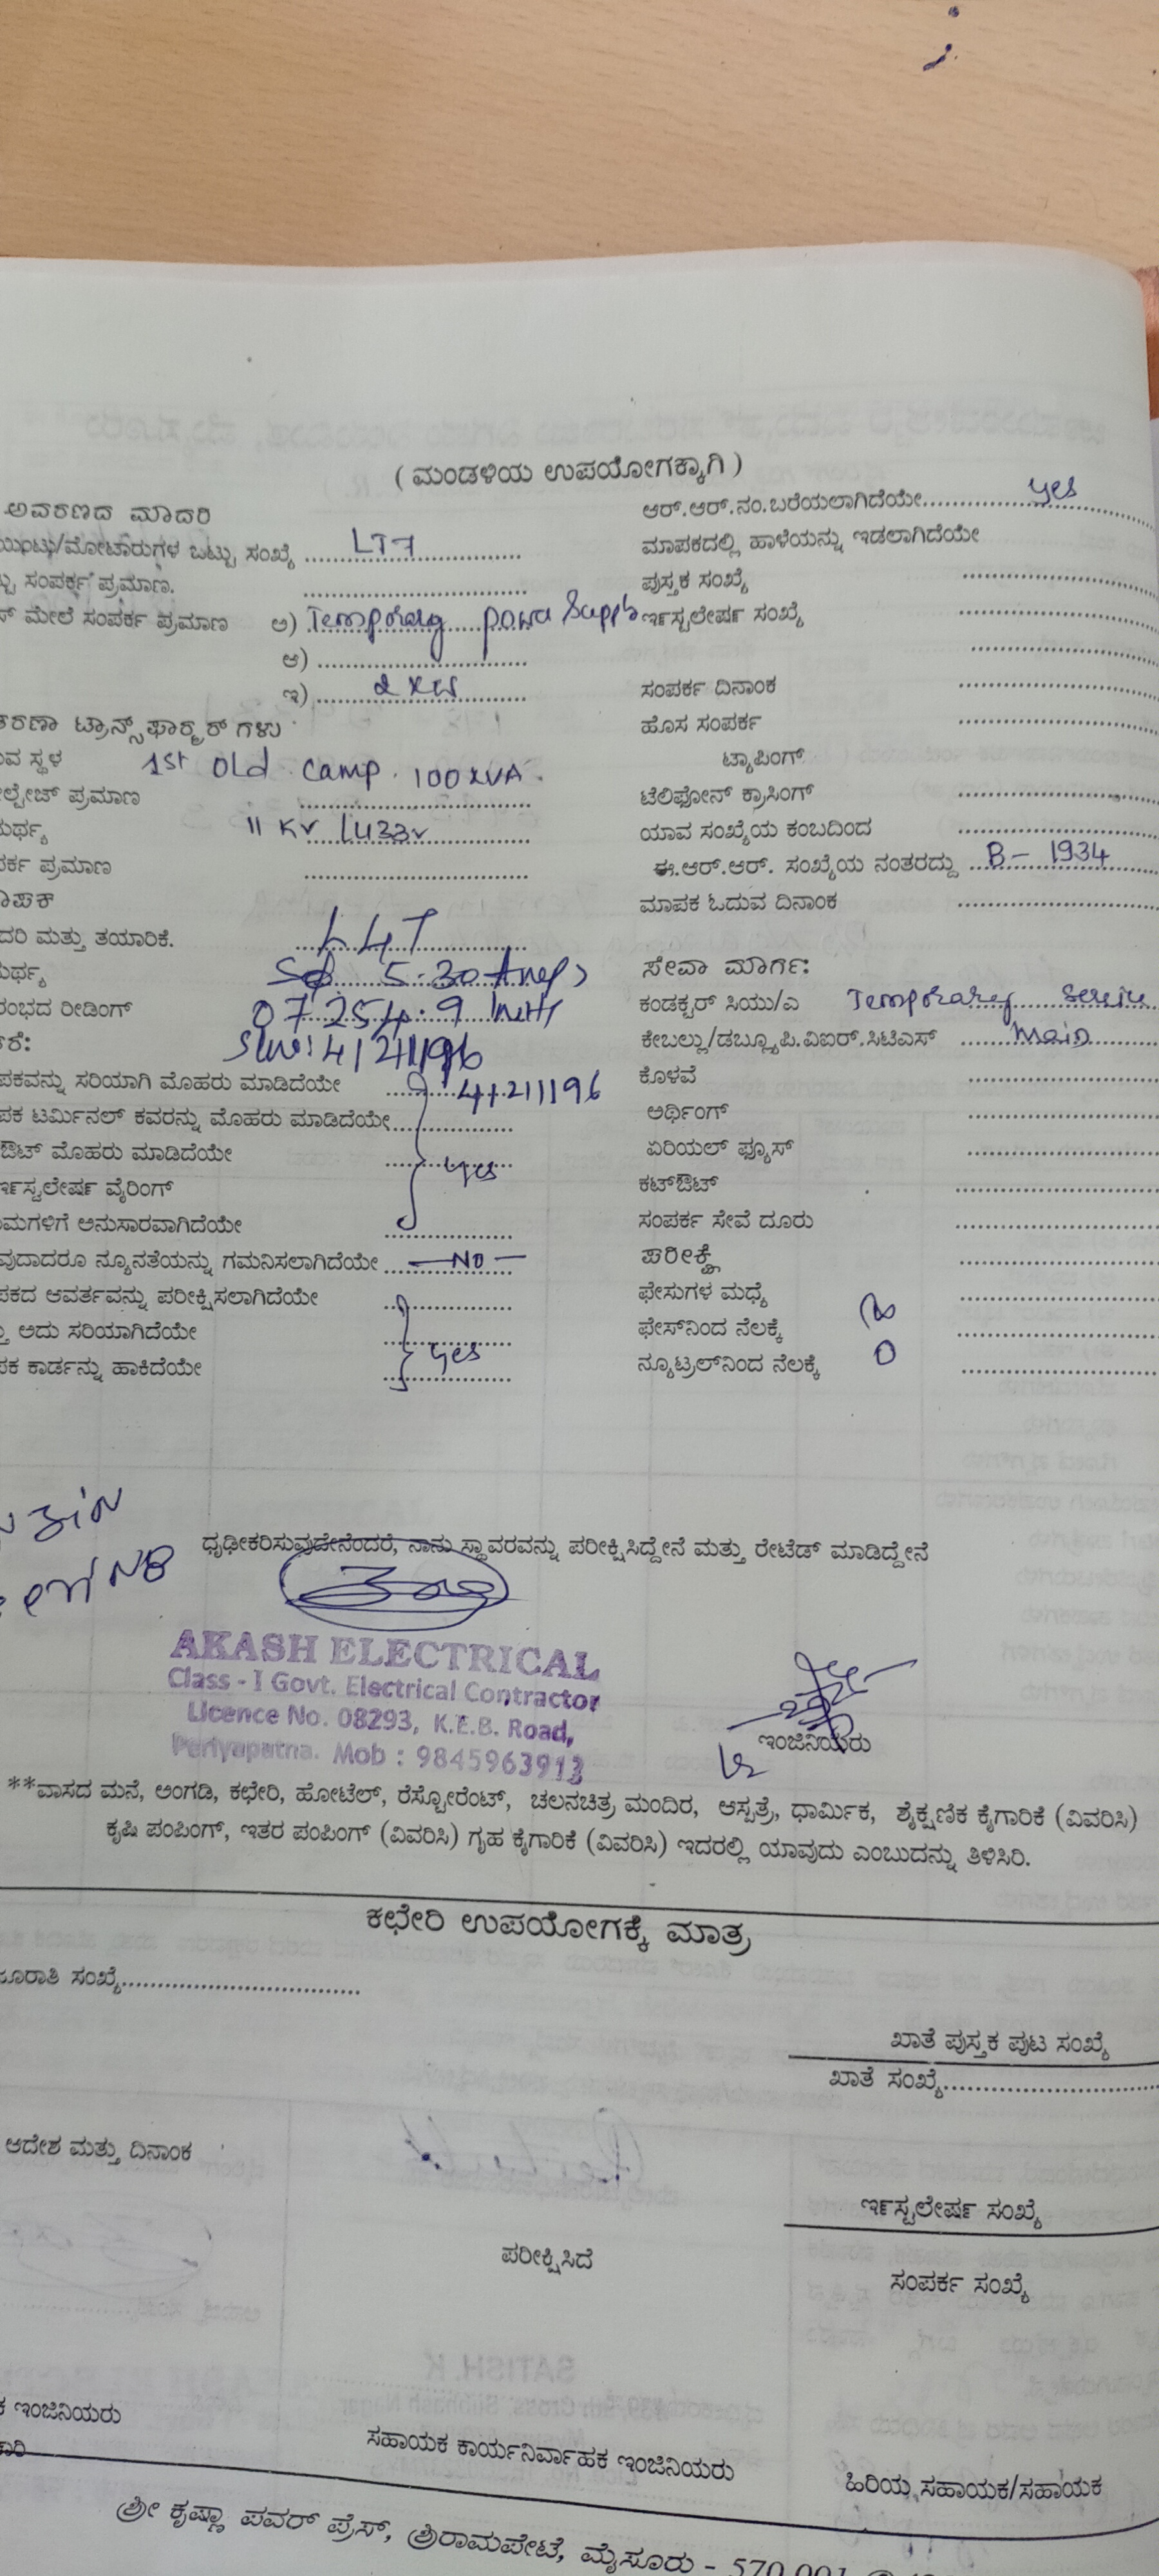 ( ಮಂಡಳಿಯ ಉಪಯೋಗಕ್ಕಾಗಿ )
ಅವರಣದ ಮಾದರಿ
ಯಿಂಟು/ಮೋಟಾರುಗಳ ಒಟ್ಟು ಸಂಖ್ಯೆ LT7
ಟ್ಟು ಸಂಪರ್ಕ ಪ್ರಮಾಣ.
ಸ್ ಮೇಲೆ ಸಂಪರ್ಕ ಪ್ರಮಾಣ ಅ) Temporary power Supply
ಆ)
ಇ) 2 KW
ತರಣಾ ಟ್ರಾನ್ಸ್‌ಫಾರ್ಮರ್ ಗಳು
ುವ ಸ್ಥಳ 1st old camp. 100 KVA.
ೋಲ್ಟೇಜ್ ಪ್ರಮಾಣ
ಮರ್ಥ್ಯ 11 KV / 433V
ಪರ್ಕ ಪ್ರಮಾಣ
ಾಪಕ
ದರಿ ಮತ್ತು ತಯಾರಿಕೆ. L&T
ಮರ್ಥ್ಯ 5-30 Amps
ರಂಭದ ರೀಡಿಂಗ್ 07254.9
ರೆ: 41211196
ಪಕವನ್ನು ಸರಿಯಾಗಿ ಮೊಹರು ಮಾಡಿದೆಯೇ 41211196
ಪಕ ಟರ್ಮಿನಲ್ ಕವರನ್ನು ಮೊಹರು ಮಾಡಿದೆಯೇ
ಔಟ್ ಮೊಹರು ಮಾಡಿದೆಯೇ yes
ಇನ್‌ಸ್ಟಲೇಷನ್ ವೈರಿಂಗ್
ಯಮಗಳಿಗೆ ಅನುಸಾರವಾಗಿದೆಯೇ
ವುದಾದರೂ ನ್ಯೂನತೆಯನ್ನು ಗಮನಿಸಲಾಗಿದೆಯೇ — NO —
ಪಕದ ಆವರ್ತವನ್ನು ಪರೀಕ್ಷಿಸಲಾಗಿದೆಯೇ
ತ್ತು ಅದು ಸರಿಯಾಗಿದೆಯೇ
ಪಕ ಕಾರ್ಡನ್ನು ಹಾಕಿದೆಯೇ yes
ಆರ್.ಆರ್.ನಂ.ಬರೆಯಲಾಗಿದೆಯೇ yes
ಮಾಪಕದಲ್ಲಿ ಹಾಳೆಯನ್ನು ಇಡಲಾಗಿದೆಯೇ
ಪುಸ್ತಕ ಸಂಖ್ಯೆ
ಇನ್‌ಸ್ಟಲೇಷನ್ ಸಂಖ್ಯೆ
ಸಂಪರ್ಕ ದಿನಾಂಕ
ಹೊಸ ಸಂಪರ್ಕ
ಟ್ಯಾಪಿಂಗ್
ಟೆಲಿಫೋನ್ ಕ್ರಾಸಿಂಗ್
ಯಾವ ಸಂಖ್ಯೆಯ ಕಂಬದಿಂದ
ಈ.ಆರ್.ಆರ್. ಸಂಖ್ಯೆಯ ನಂತರದ್ದು B - 1934
ಮಾಪಕ ಓದುವ ದಿನಾಂಕ
ಸೇವಾ ಮಾರ್ಗ:
ಕಂಡಕ್ಟರ್ ಸಿಯು/ಎ Temporary Service
ಕೇಬಲ್ಲು/ಡಬ್ಲ್ಯೂ.ಪಿ.ವಿಐರ್.ಸಿಟಿಎಸ್ main
ಕೊಳವೆ
ಅರ್ಥಿಂಗ್
ಏರಿಯಲ್ ಫ್ಯೂಸ್
ಕಟ್‌ಔಟ್
ಸಂಪರ್ಕ ಸೇವೆ ದೂರು
ಪರೀಕ್ಷೆ
ಫೇಸುಗಳ ಮಧ್ಯೆ
ಫೇಸ್‌ನಿಂದ ನೆಲಕ್ಕೆ
ನ್ಯೂಟ್ರಲ್‌ನಿಂದ ನೆಲಕ್ಕೆ 0
ಧೃಢೀಕರಿಸುವುದೇನೆಂದರೆ, ನಾನು ಸ್ಥಾವರವನ್ನು ಪರೀಕ್ಷಿಸಿದ್ದೇನೆ ಮತ್ತು ರೇಟೆಡ್ ಮಾಡಿದ್ದೇನೆ
AKASH ELECTRICAL
Class - I Govt. Electrical Contractor
Licence No. 08293, K.E.B. Road,
Periyapatna. Mob : 9845963913
ಇಂಜಿನಿಯರು
**ವಾಸದ ಮನೆ, ಅಂಗಡಿ, ಕಛೇರಿ, ಹೋಟೆಲ್, ರೆಸ್ಟೋರೆಂಟ್, ಚಲನಚಿತ್ರ ಮಂದಿರ, ಆಸ್ಪತ್ರೆ, ಧಾರ್ಮಿಕ, ಶೈಕ್ಷಣಿಕ ಕೈಗಾರಿಕೆ (ವಿವರಿಸಿ)
ಕೃಷಿ ಪಂಪಿಂಗ್, ಇತರ ಪಂಪಿಂಗ್ (ವಿವರಿಸಿ) ಗೃಹ ಕೈಗಾರಿಕೆ (ವಿವರಿಸಿ) ಇದರಲ್ಲಿ ಯಾವುದು ಎಂಬುದನ್ನು ತಿಳಿಸಿರಿ.
ಕಛೇರಿ ಉಪಯೋಗಕ್ಕೆ ಮಾತ್ರ
ಜೂರಾತಿ ಸಂಖ್ಯೆ
ಖಾತೆ ಪುಸ್ತಕ ಪುಟ ಸಂಖ್ಯೆ
ಖಾತೆ ಸಂಖ್ಯೆ
ಆದೇಶ ಮತ್ತು ದಿನಾಂಕ
ಇನ್‌ಸ್ಟಲೇಷನ್ ಸಂಖ್ಯೆ
ಪರೀಕ್ಷಿಸಿದೆ
ಸಂಪರ್ಕ ಸಂಖ್ಯೆ
ಕ ಇಂಜಿನಿಯರು
ಸಹಾಯಕ ಕಾರ್ಯನಿರ್ವಾಹಕ ಇಂಜಿನಿಯರು
ಹಿರಿಯ ಸಹಾಯಕ/ಸಹಾಯಕ
ಶ್ರೀ ಕೃಷ್ಣಾ ಪವರ್ ಪ್ರೆಸ್, ಶ್ರೀರಾಮಪೇಟೆ, ಮೈಸೂರು - 570 001